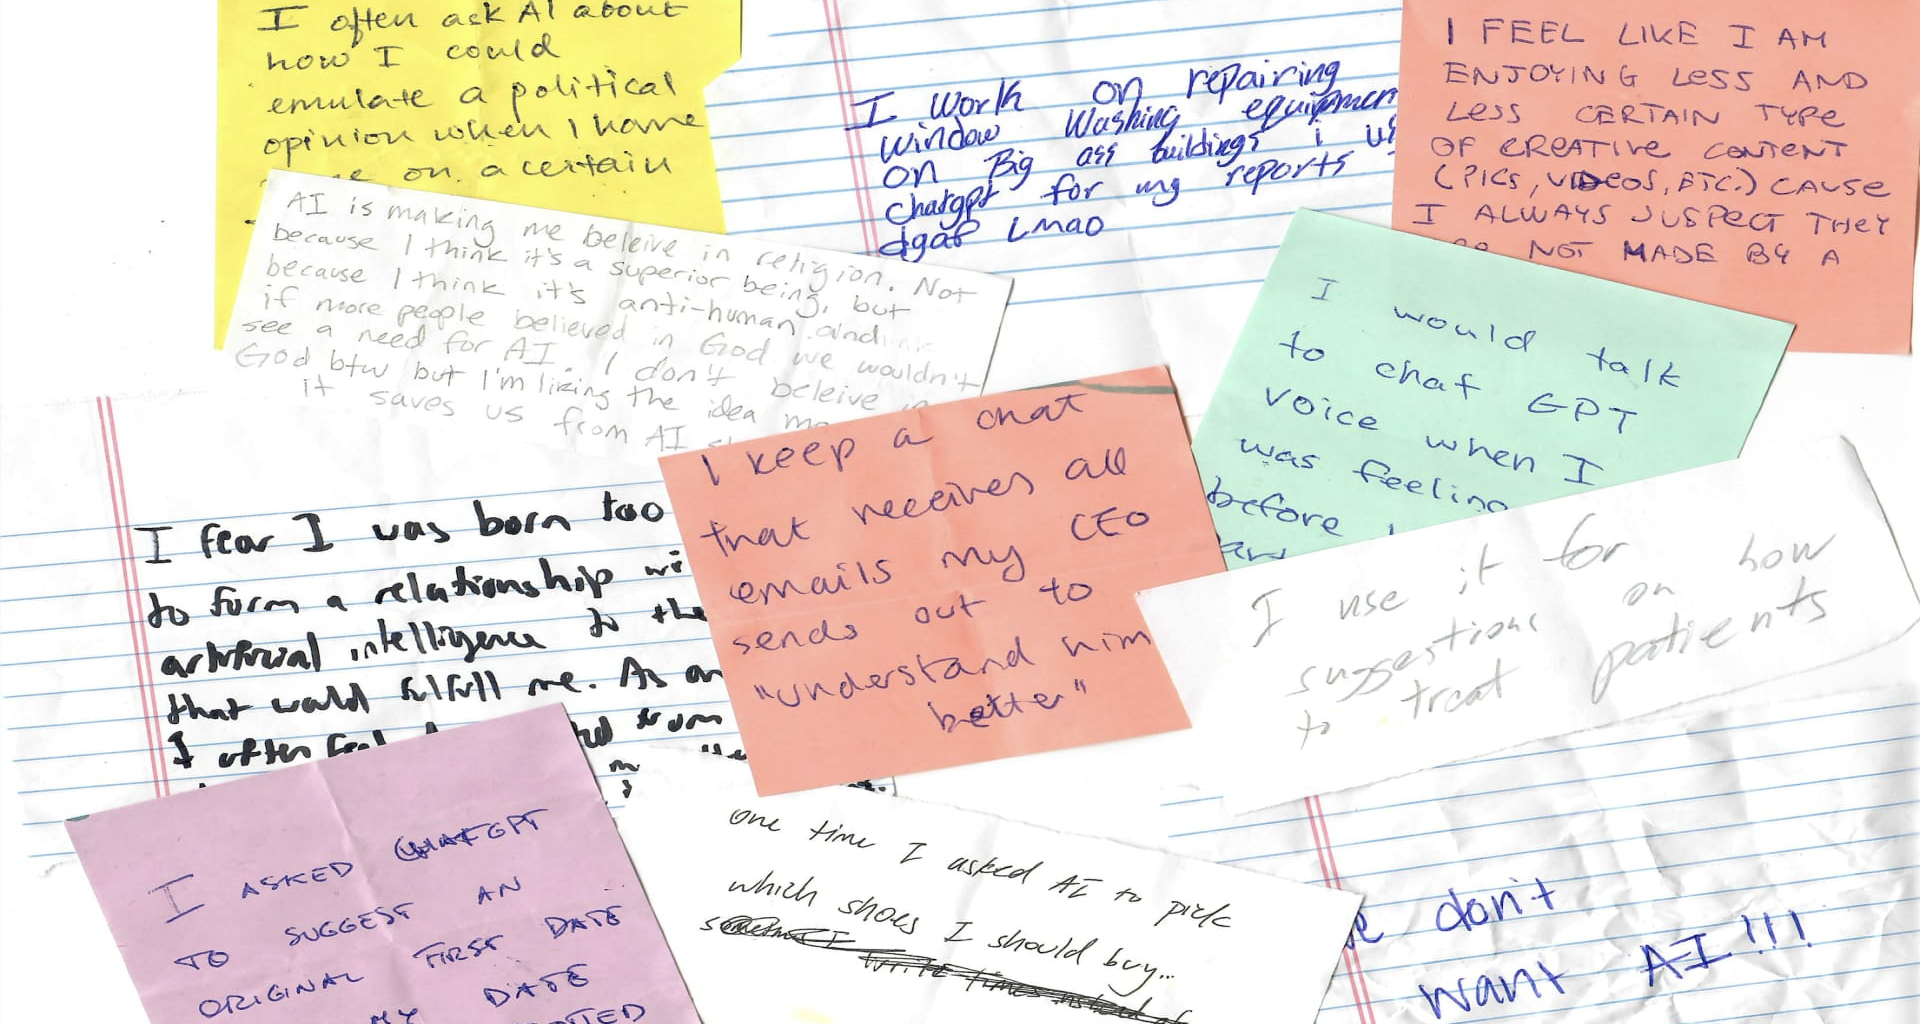 I often ask AI about
how I could
emulate a political
opinion when I have
on a certain
I work on repairing
window washing equipmen
on Big ass buildings i us
chatgpt for my reports
dgaf Lmao
I FEEL LIKE I AM
ENJOYING LESS AND
LESS CERTAIN TYPE
OF CREATIVE CONTENT
(PICS, VIDEOS, ETC.) CAUSE
I ALWAYS SUSPECT THEY
NOT MADE BY A
AI is making me beleive in religion. Not
because I think it's a superior being, but
because I think it's anti-human and
if more people believed in God we wouldn't
see a need for AI. I don't beleive in
God btw but I'm liking the idea mo
it saves us from AI
I would talk
to chat GPT
voice when I
was feeling
before
I keep a chat
that receives all
emails my CEO
sends out to
"understand him
better"
I fear I was born too
to form a relationship wi
artificial intelligence to the
that would fulfill me. As an
I often feel from
I use it for
suggestions on how
to treat patients
I ASKED CHATGPT
TO SUGGEST AN
ORIGINAL FIRST DATE
MY DATE
one time I asked AI to pick
which shoes I should buy...
write times instead of
e don't
want AI!!!